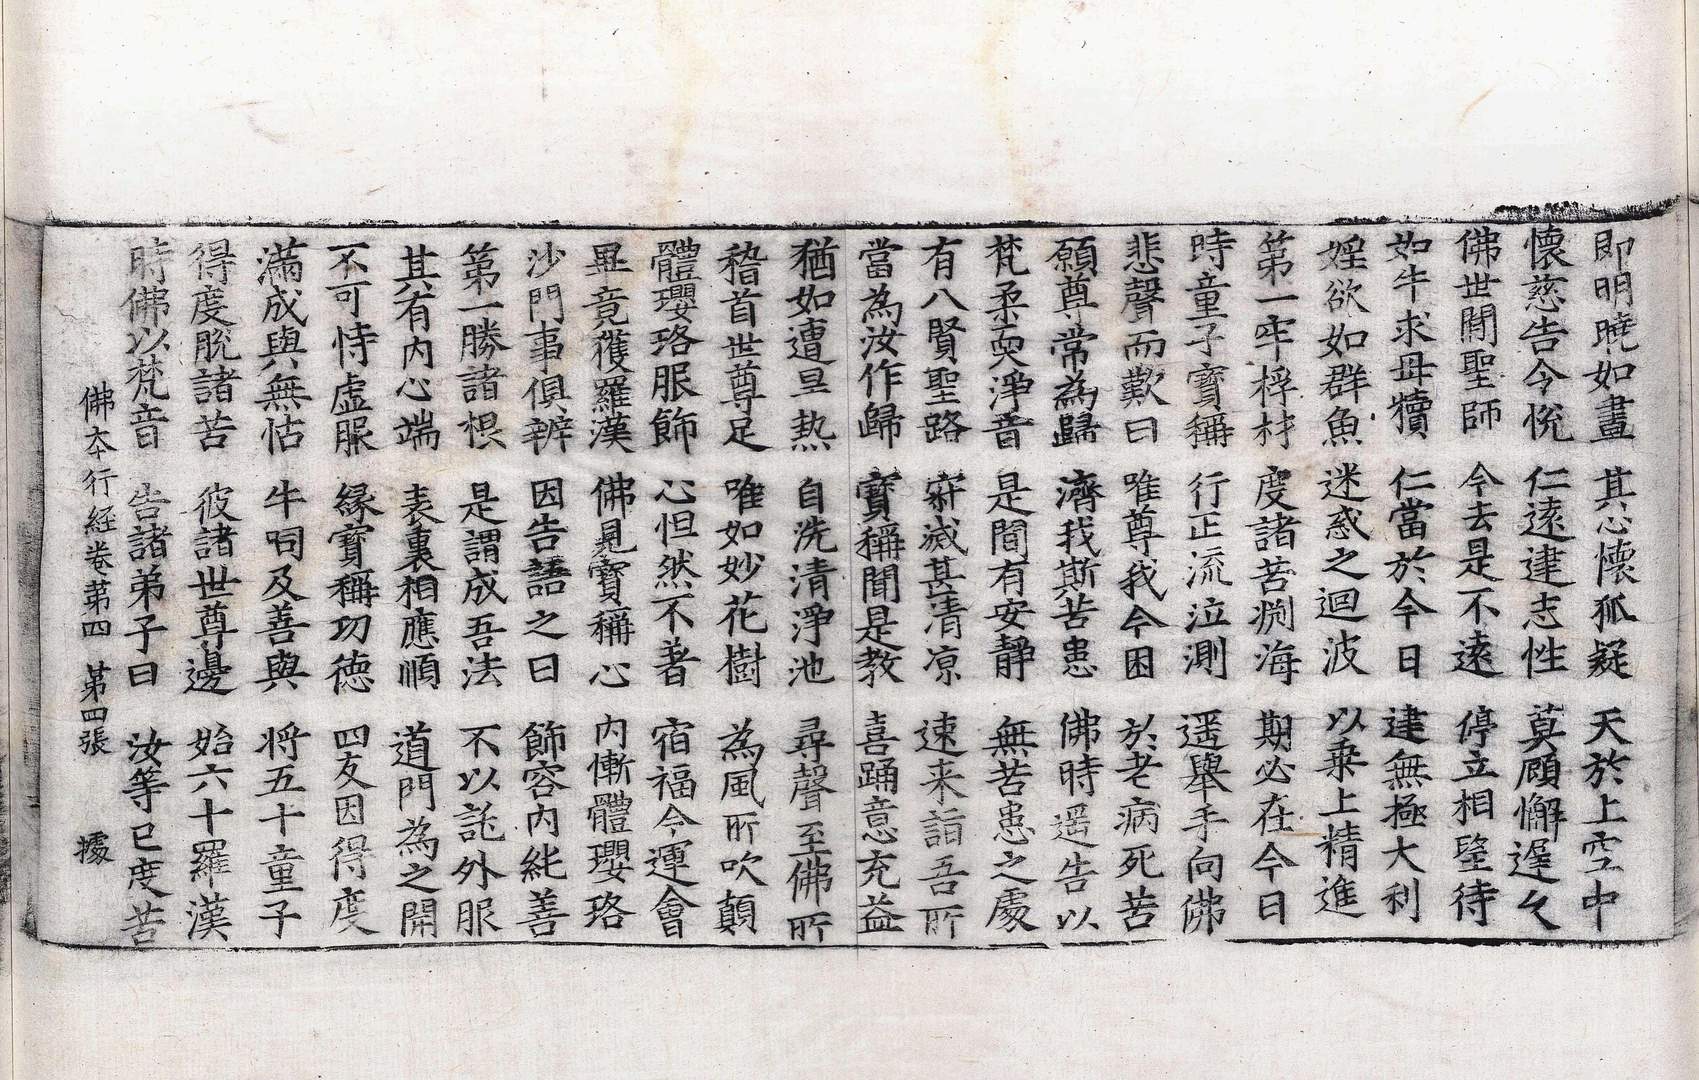 即明曉如晝 其心懷狐疑 天於上空中
懷慈告令悅 仁遠建志性 莫顧懈遲久
佛世間聖師 今去是不遠 停立相望待
如牛求母犢 仁當於今日 建無極大利
婬欲如群魚 迷惑之迴波 以乗上精進
第一牢椊材 度諸苦渕海 期必在今日
時童子寶稱 行正流泣測 遥舉手向佛
悲聲而歎曰 唯尊我今困 於老病死苦
願尊常為歸 濟我斯苦患 佛時遥告以
梵柔耎淨音 是間有安靜 無苦患之處
有八賢聖路 寂滅甚清凉 速来詣吾所
當為汝作歸 寶稱聞是教 喜踊意充益
猶如遭旱热 自洗清淨池 尋聲至佛所
稽首世尊足 唯如妙花樹 為風所吹顛
體瓔珞服飾 心怛然不著 宿福今運會
畢竟獲羅漢 佛見寶稱心 内慚體瓔珞
沙門事俱辨 因告語之曰 飾容内純善
第一勝諸根 是謂成吾法 不以託外服
其有内心端 表裏相應順 道門為之開
不可恃虛服 緣寶稱功德 四友因得度
滿成與無怙 牛呞及善與 将五十童子
得度脫諸苦 彼諸世尊邊 始六十羅漢
時佛以梵音 告諸弟子曰 汝等已度苦
佛本行經卷第四 第四張 據